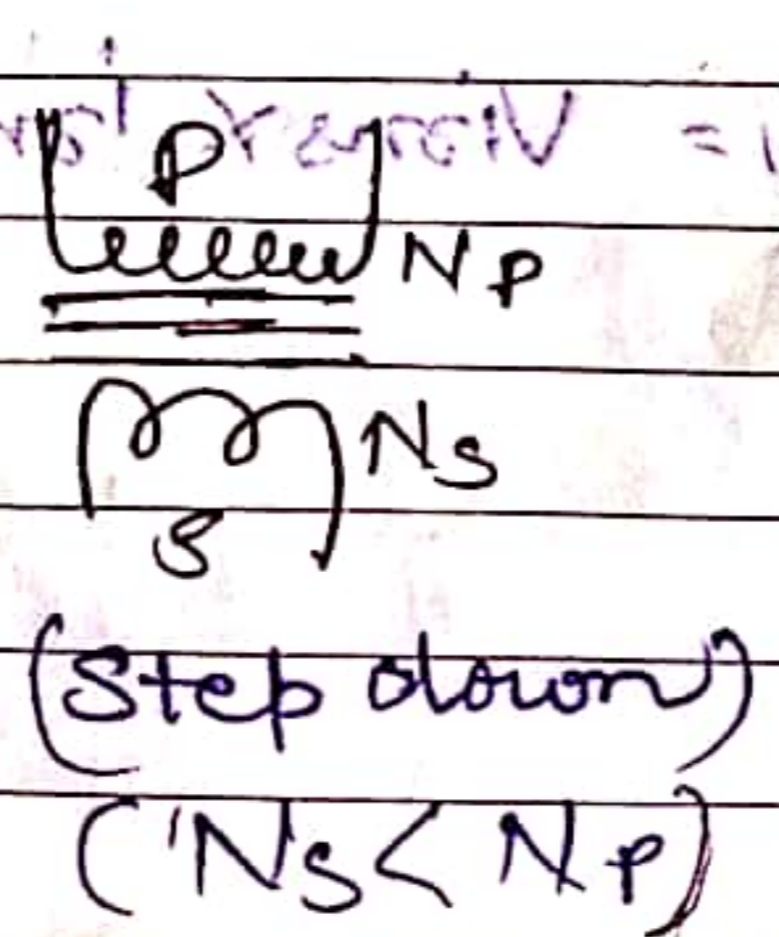 P
Np
Ns
S
(Step down)
(Ns < Np)